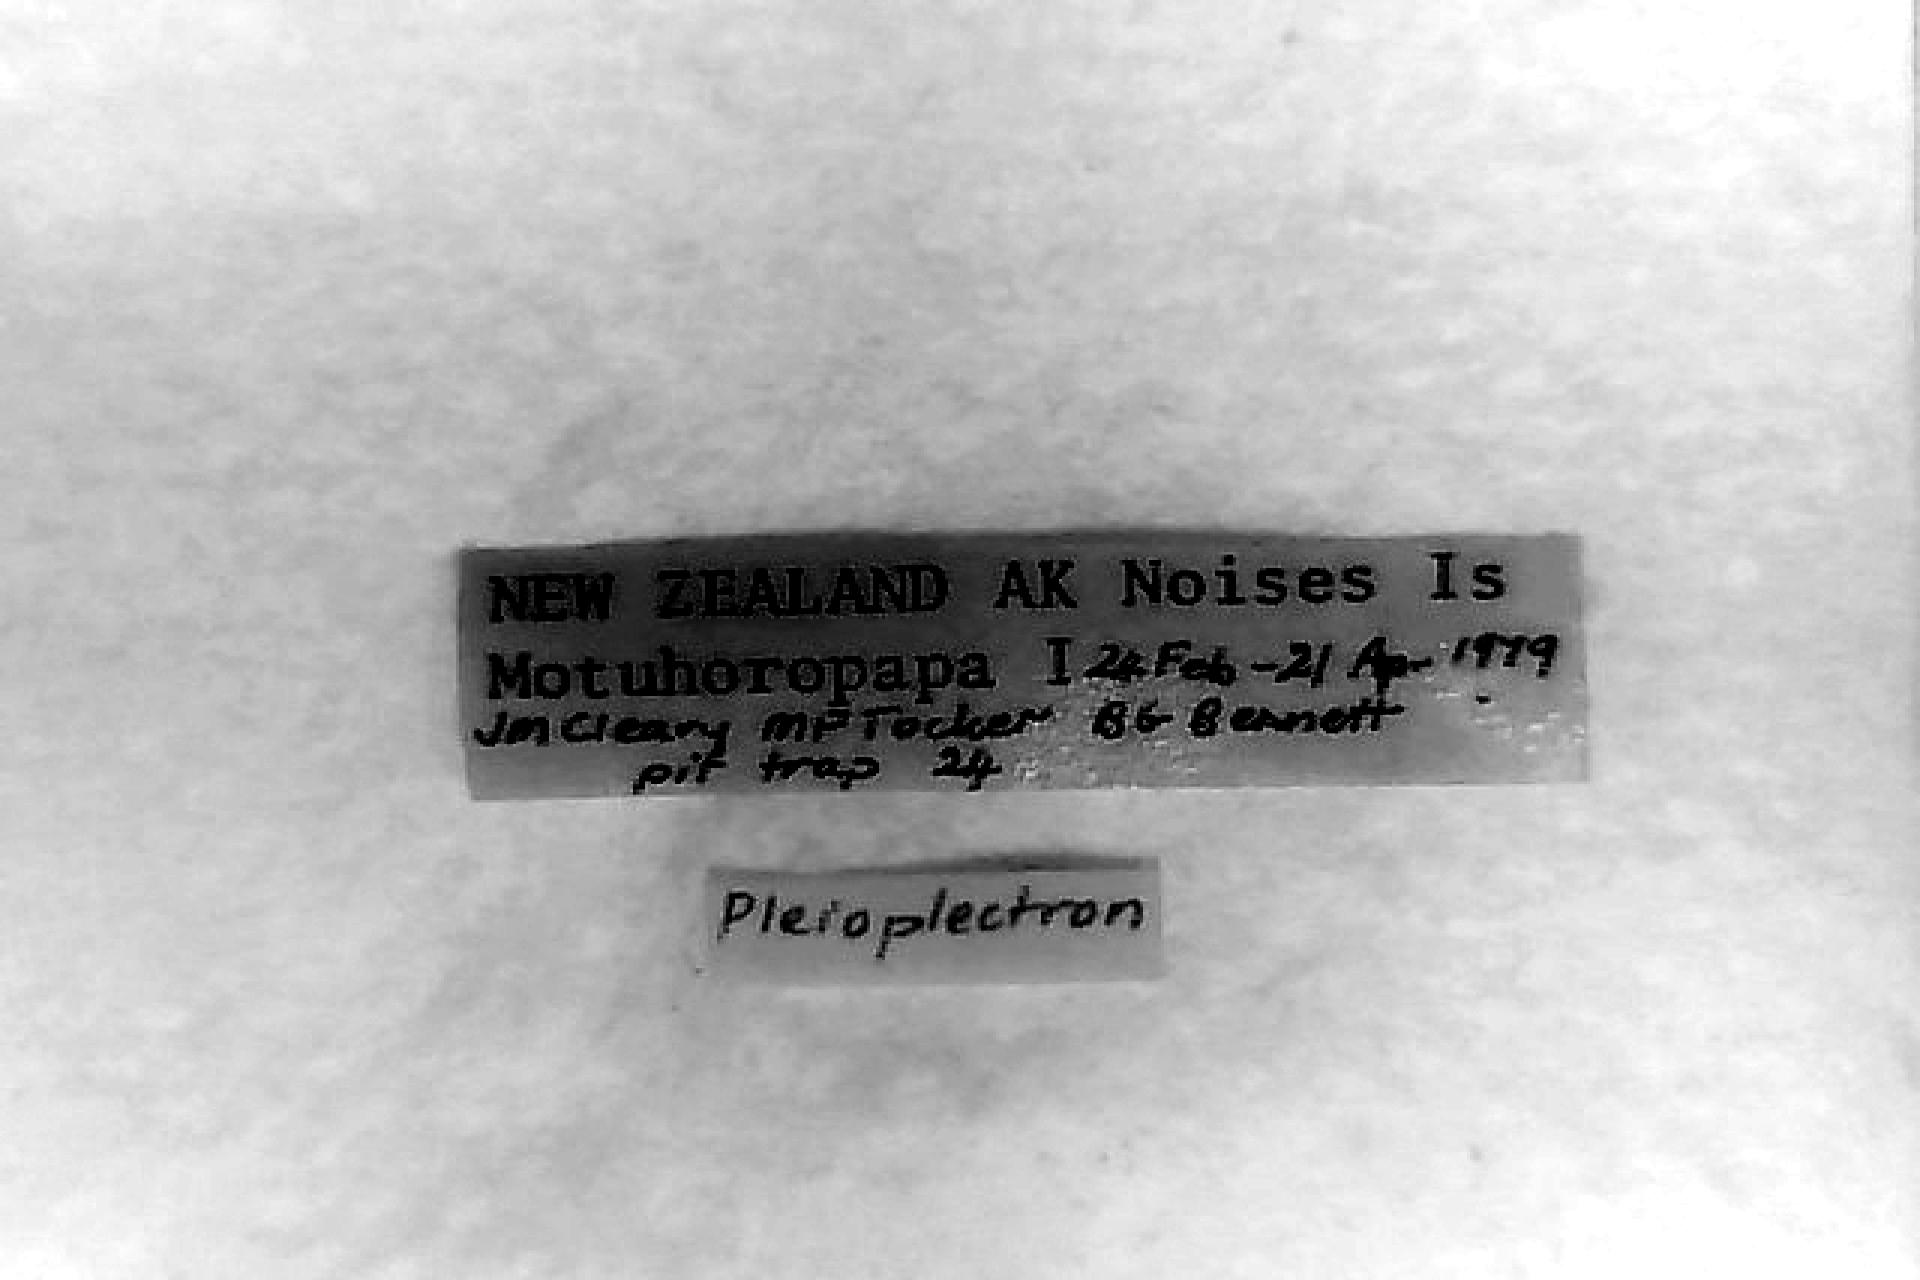 NEW ZEALAND AK Noises Is
Motuhoropapa I 24 Feb - 21 Apr 1979
JM Cleary MF Tocker BG Bennett
pit trap 24
Pleioplectron